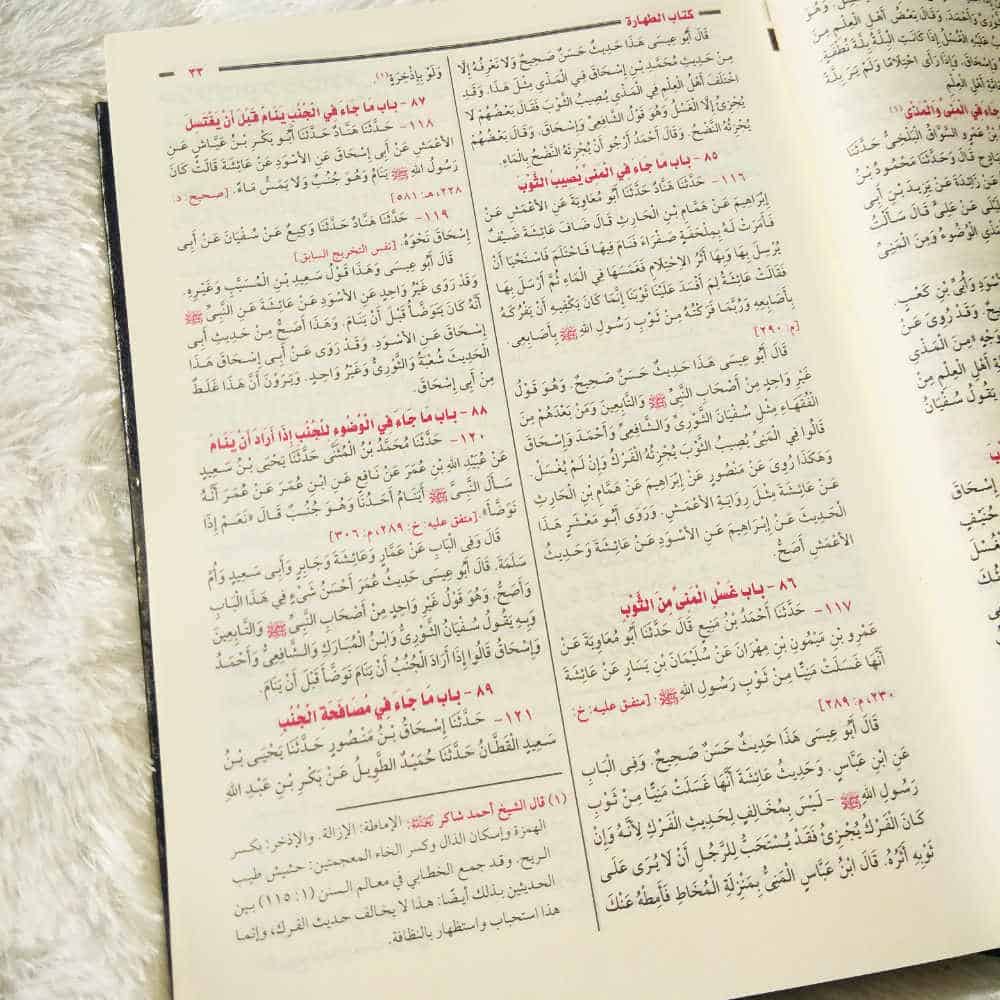 كتاب الطهارة
٣٣
قَالَ أَبُو عِيسَى هَذَا حَدِيثٌ حَسَنٌ صَحِيحٌ وَلَا نَعْرِفُهُ إِلَّا
مِنْ حَدِيثِ مُحَمَّدِ بْنِ إِسْحَاقَ فِي الْمَذْيِ مِثْلَ هَذَا. وَقَدِ
اخْتَلَفَ أَهْلُ الْعِلْمِ فِي الْمَذْيِ يُصِيبُ الثَّوْبَ فَقَالَ بَعْضُهُمْ لَا
يُجْزِئُ إِلَّا الْغَسْلُ وَهُوَ قَوْلُ الشَّافِعِيِّ وَإِسْحَاقَ. وَقَالَ بَعْضُهُمْ
يُجْزِئُهُ النَّضْحُ. وَقَالَ أَحْمَدُ أَرْجُو أَنْ يُجْزِئَهُ النَّضْحُ بِالْمَاءِ.
٨٥ - باب مَا جَاءَ فِي الْمَنِيِّ يُصِيبُ الثَّوْبَ
١١٦- حَدَّثَنَا هَنَّادٌ حَدَّثَنَا أَبُو مُعَاوِيَةَ عَنِ الأَعْمَشِ عَنْ
إِبْرَاهِيمَ عَنْ هَمَّامِ بْنِ الْحَارِثِ قَالَ ضَافَ عَائِشَةَ ضَيْفٌ
فَأَمَرَتْ لَهُ بِمِلْحَفَةٍ صَفْرَاءَ فَنَامَ فِيهَا فَاحْتَلَمَ فَاسْتَحْيَا أَنْ
يُرْسِلَ بِهَا وَبِهَا أَثَرُ الاِحْتِلَامِ فَغَمَسَهَا فِي الْمَاءِ ثُمَّ أَرْسَلَ بِهَا
فَقَالَتْ عَائِشَةُ لِمَ أَفْسَدَ عَلَيْنَا ثَوْبَنَا إِنَّمَا كَانَ يَكْفِيهِ أَنْ يَفْرُكَهُ
بِأَصَابِعِهِ وَرُبَّمَا فَرَكْتُهُ مِنْ ثَوْبِ رَسُولِ اللهِ ﷺ بِأَصَابِعِي.
[م: ٢٩٠]
قَالَ أَبُو عِيسَى هَذَا حَدِيثٌ حَسَنٌ صَحِيحٌ. وَهُوَ قَوْلُ
غَيْرِ وَاحِدٍ مِنْ أَصْحَابِ النَّبِيِّ ﷺ وَالتَّابِعِينَ وَمَنْ بَعْدَهُمْ مِنَ
الْفُقَهَاءِ مِثْلِ سُفْيَانَ الثَّوْرِيِّ وَالشَّافِعِيِّ وَأَحْمَدَ وَإِسْحَاقَ
قَالُوا فِي الْمَنِيِّ يُصِيبُ الثَّوْبَ يُجْزِئُهُ الْفَرْكُ وَإِنْ لَمْ يُغْسَلْ.
وَهَكَذَا رُوِيَ عَنْ مَنْصُورٍ عَنْ إِبْرَاهِيمَ عَنْ هَمَّامِ بْنِ الْحَارِثِ
عَنْ عَائِشَةَ مِثْلَ رِوَايَةِ الأَعْمَشِ. وَرَوَى أَبُو مَعْشَرٍ هَذَا
الْحَدِيثَ عَنْ إِبْرَاهِيمَ عَنِ الأَسْوَدِ عَنْ عَائِشَةَ وَحَدِيثُ
الأَعْمَشِ أَصَحُّ.
٨٦ - باب غَسْلِ الْمَنِيِّ مِنَ الثَّوْبِ
١١٧- حَدَّثَنَا أَحْمَدُ بْنُ مَنِيعٍ قَالَ حَدَّثَنَا أَبُو مُعَاوِيَةَ عَنْ
عَمْرِو بْنِ مَيْمُونِ بْنِ مِهْرَانَ عَنْ سُلَيْمَانَ بْنِ يَسَارٍ عَنْ عَائِشَةَ
أَنَّهَا غَسَلَتْ مَنِيًّا مِنْ ثَوْبِ رَسُولِ اللهِ ﷺ. [متفق عليه: خ:
٢٣٠، م: ٢٨٩]
قَالَ أَبُو عِيسَى هَذَا حَدِيثٌ حَسَنٌ صَحِيحٌ. وَفِي الْبَابِ
عَنِ ابْنِ عَبَّاسٍ. وَحَدِيثُ عَائِشَةَ أَنَّهَا غَسَلَتْ مَنِيًّا مِنْ ثَوْبِ
رَسُولِ اللهِ ﷺ - لَيْسَ بِمُخَالِفٍ لِحَدِيثِ الْفَرْكِ لِأَنَّهُ وَإِنْ
كَانَ الْفَرْكُ يُجْزِئُ فَقَدْ يُسْتَحَبُّ لِلرَّجُلِ أَنْ لَا يُرَى عَلَى
ثَوْبِهِ أَثَرُهُ. قَالَ ابْنُ عَبَّاسٍ الْمَنِيُّ بِمَنْزِلَةِ الْمُخَاطِ فَأَمِطْهُ عَنْكَ
وَلَوْ بِإِذْخِرَةٍ(١).
٨٧ - باب مَا جَاءَ فِي الْجُنُبِ يَنَامُ قَبْلَ أَنْ يَغْتَسِلَ
١١٨- حَدَّثَنَا هَنَّادٌ حَدَّثَنَا أَبُو بَكْرِ بْنُ عَيَّاشٍ عَنِ
الأَعْمَشِ عَنْ أَبِي إِسْحَاقَ عَنِ الأَسْوَدِ عَنْ عَائِشَةَ قَالَتْ كَانَ
رَسُولُ اللهِ ﷺ يَنَامُ وَهُوَ جُنُبٌ وَلَا يَمَسُّ مَاءً. [صحيح: د:
٢٢٨، هـ: ٥٨١]
١١٩- حَدَّثَنَا هَنَّادٌ حَدَّثَنَا وَكِيعٌ عَنْ سُفْيَانَ عَنْ أَبِي
إِسْحَاقَ نَحْوَهُ. [نفس التخريج السابق]
قَالَ أَبُو عِيسَى وَهَذَا قَوْلُ سَعِيدِ بْنِ الْمُسَيَّبِ وَغَيْرِهِ.
وَقَدْ رَوَى غَيْرُ وَاحِدٍ عَنِ الأَسْوَدِ عَنْ عَائِشَةَ عَنِ النَّبِيِّ ﷺ
أَنَّهُ كَانَ يَتَوَضَّأُ قَبْلَ أَنْ يَنَامَ. وَهَذَا أَصَحُّ مِنْ حَدِيثِ أَبِي
إِسْحَاقَ عَنِ الأَسْوَدِ. وَقَدْ رَوَى عَنْ أَبِي إِسْحَاقَ هَذَا
الْحَدِيثَ شُعْبَةُ وَالثَّوْرِيُّ وَغَيْرُ وَاحِدٍ. وَيَرَوْنَ أَنَّ هَذَا غَلَطٌ
مِنْ أَبِي إِسْحَاقَ.
٨٨ - باب مَا جَاءَ فِي الْوُضُوءِ لِلْجُنُبِ إِذَا أَرَادَ أَنْ يَنَامَ
١٢٠- حَدَّثَنَا مُحَمَّدُ بْنُ الْمُثَنَّى حَدَّثَنَا يَحْيَى بْنُ سَعِيدٍ
عَنْ عُبَيْدِ اللهِ بْنِ عُمَرَ عَنْ نَافِعٍ عَنِ ابْنِ عُمَرَ عَنْ عُمَرَ أَنَّهُ
سَأَلَ النَّبِيَّ ﷺ أَيَنَامُ أَحَدُنَا وَهُوَ جُنُبٌ قَالَ «نَعَمْ إِذَا
تَوَضَّأَ». [متفق عليه: خ: ٢٨٩، م: ٣٠٦]
قَالَ وَفِي الْبَابِ عَنْ عَمَّارٍ وَعَائِشَةَ وَجَابِرٍ وَأَبِي سَعِيدٍ وَأُمِّ
سَلَمَةَ. قَالَ أَبُو عِيسَى حَدِيثُ عُمَرَ أَحْسَنُ شَيْءٍ فِي هَذَا الْبَابِ
وَأَصَحُّ. وَهُوَ قَوْلُ غَيْرِ وَاحِدٍ مِنْ أَصْحَابِ النَّبِيِّ ﷺ وَالتَّابِعِينَ
وَبِهِ يَقُولُ سُفْيَانُ الثَّوْرِيُّ وَابْنُ الْمُبَارَكِ وَالشَّافِعِيُّ وَأَحْمَدُ
وَإِسْحَاقُ قَالُوا إِذَا أَرَادَ الْجُنُبُ أَنْ يَنَامَ تَوَضَّأَ قَبْلَ أَنْ يَنَامَ.
٨٩ - باب مَا جَاءَ فِي مُصَافَحَةِ الْجُنُبِ
١٢١- حَدَّثَنَا إِسْحَاقُ بْنُ مَنْصُورٍ حَدَّثَنَا يَحْيَى بْنُ
سَعِيدٍ الْقَطَّانُ حَدَّثَنَا حُمَيْدٌ الطَّوِيلُ عَنْ بَكْرِ بْنِ عَبْدِ اللهِ
(١) قال الشيخ أحمد شاكر رحمه الله: الإماطة: الإزالة. والإذخر: بكسر
الهمزة وإسكان الذال وكسر الخاء المعجمتين: حشيش طيب
الريح. وقد جمع الخطابي في معالم السنن (١: ١١٥) بين
الحديثين بذلك أيضًا: هذا لا يخالف حديث الفرك، وإنما
هذا استحباب واستظهار بالنظافة.